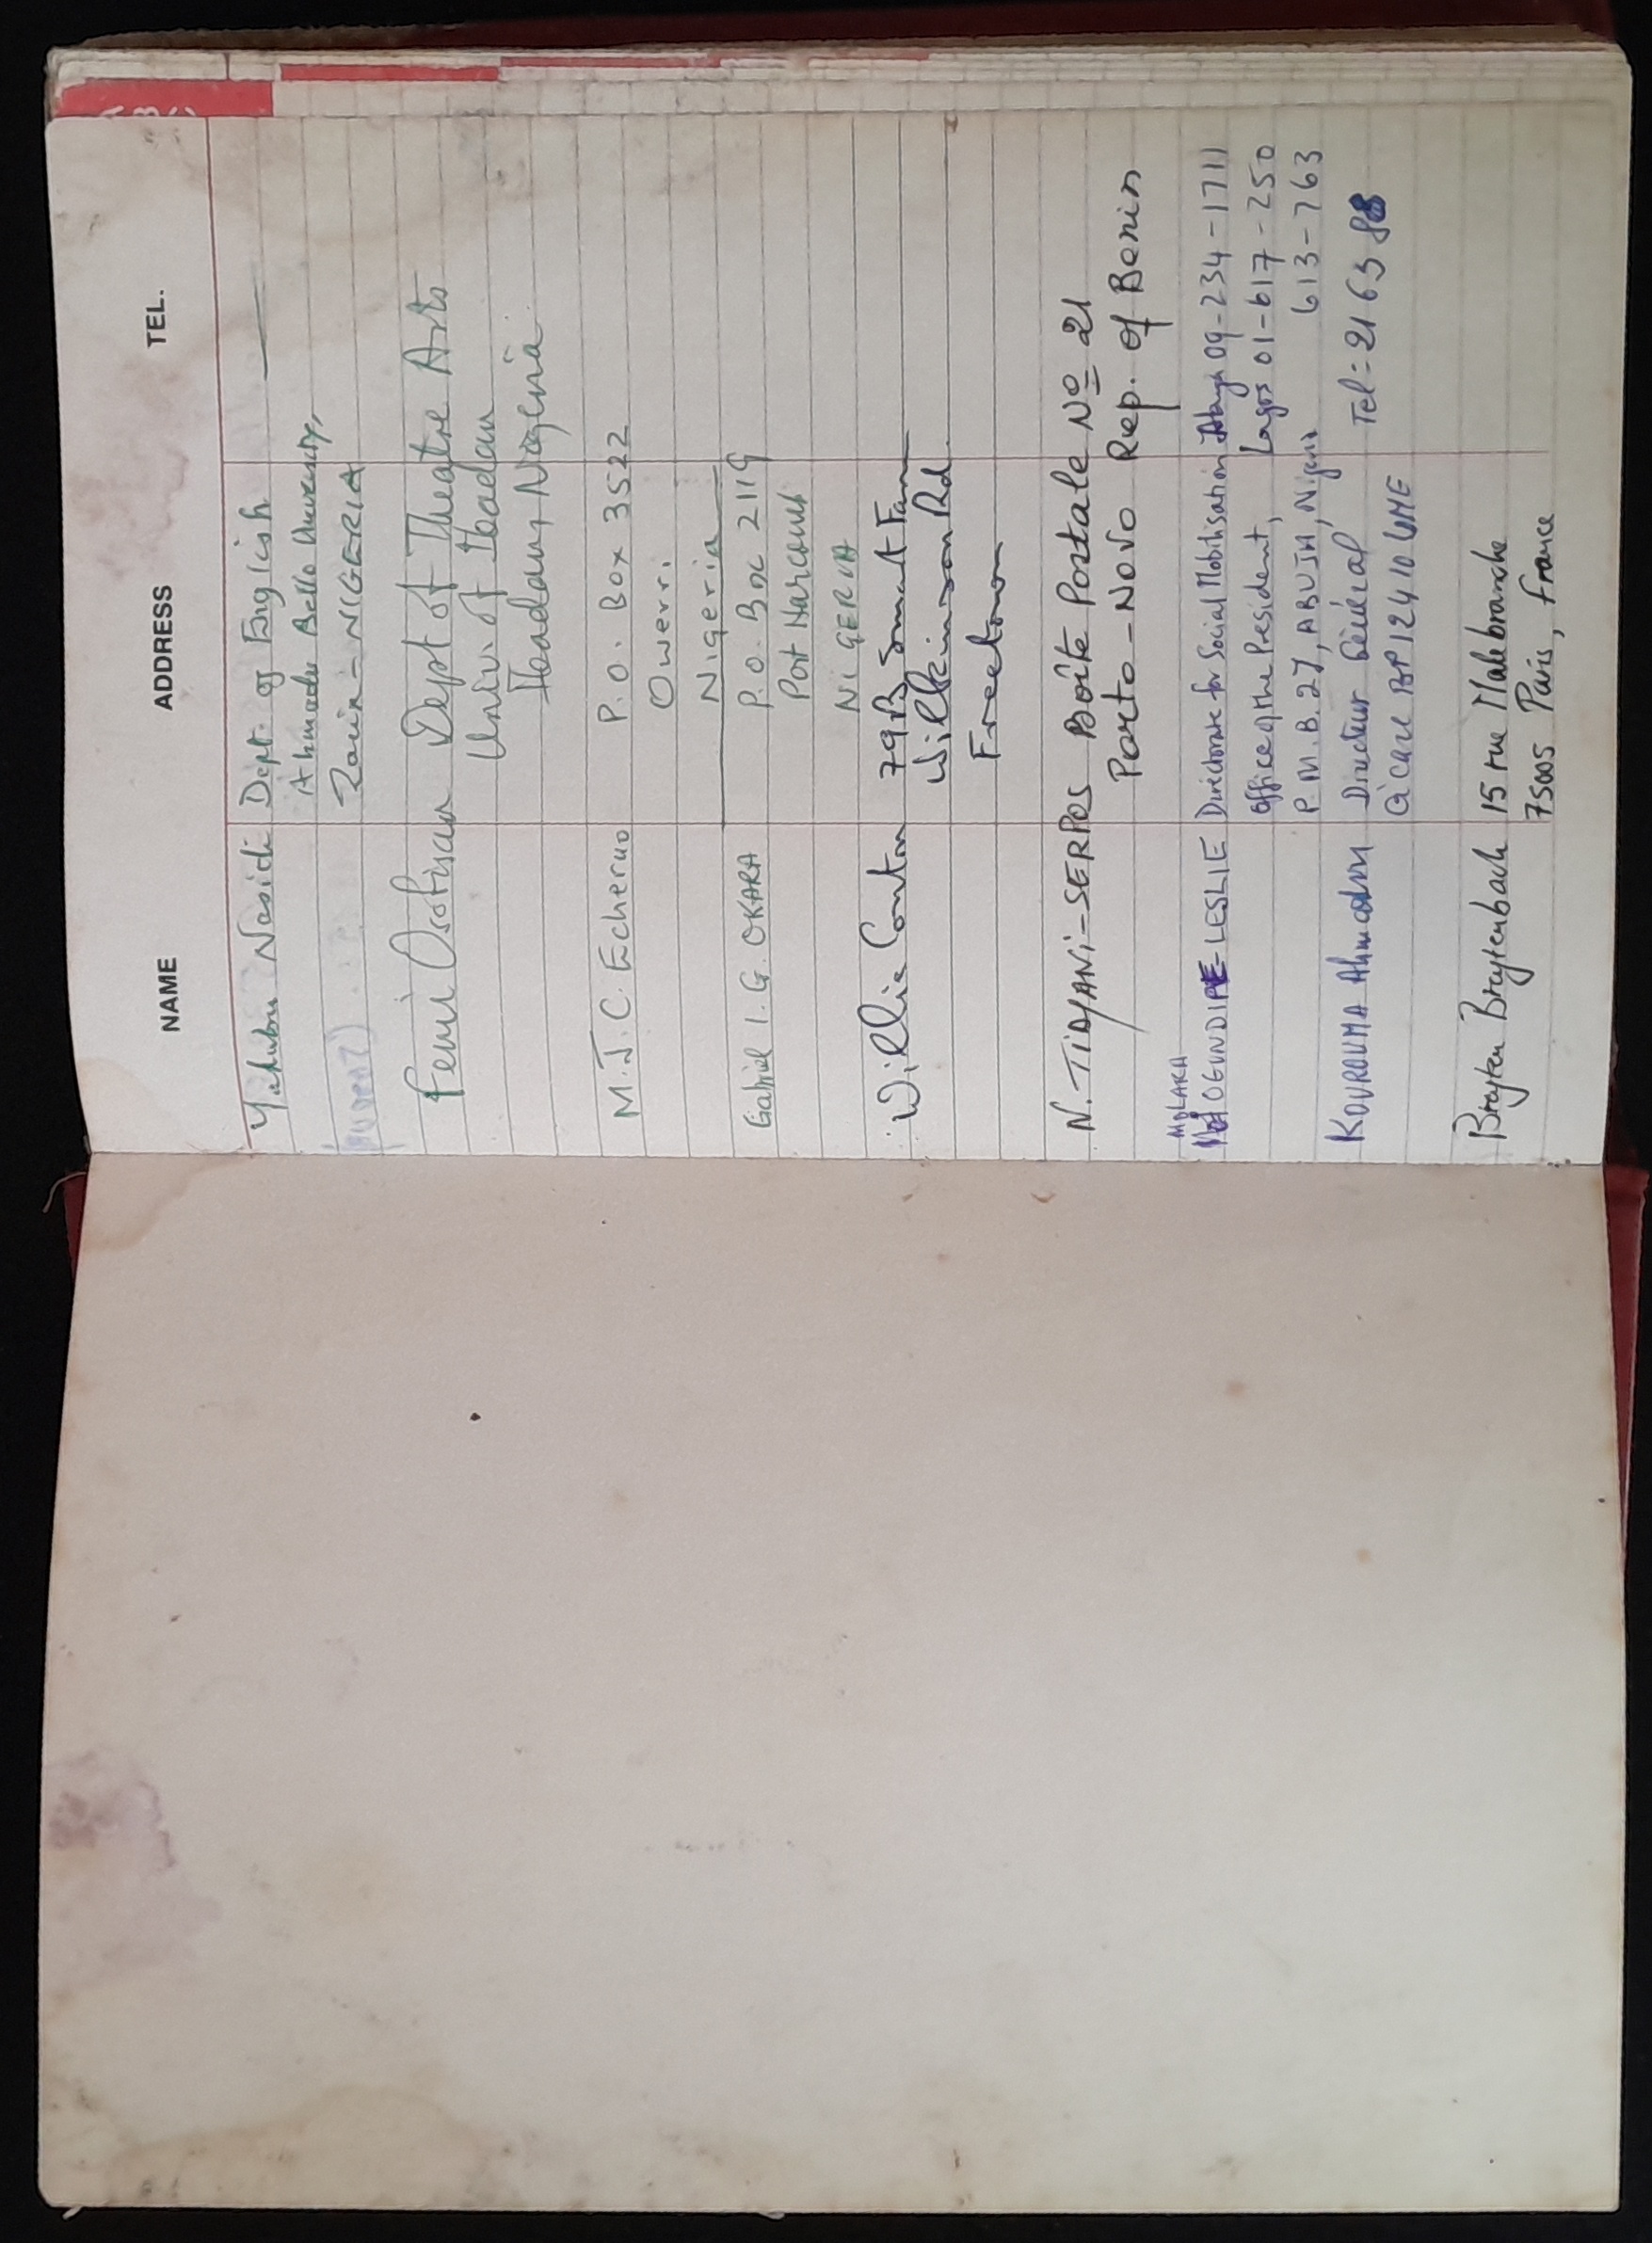 NAME ADDRESS TEL.
Yakubu Nasidi Dept. of English
Ahmadu Bello University,
Zaria - NIGERIA
Femi Osofisan Dept of Theatre Arts
Univ. of Ibadan
Ibadan, Nigeria.
M.J.C. Echeruo P.O. Box 3522
Owerri
Nigeria
Gabriel I. G. OKARA P.O. Box 2119
Port Harcourt
NIGERIA
Willie Conton 79B Smart Farm
Wilkinson Rd.
Freetown
N. TIDJANI-SERPOS Boîte Postale No 21
Porto-Novo Rep. of Benin
MOLARA
OGUNDIPE-LESLIE Directorate for Social Mobilisation Abuja 09-234-1711
Office of the President, Lagos 01-617-250
P.M.B. 27, ABUJA, Nigeria 613-763
KOUROUMA Ahmadou Directeur Général Tel = 21 63
Cicare BP 12410 LOME
Breyten Breytenbach 15 rue Malebranche
75005 Paris, France